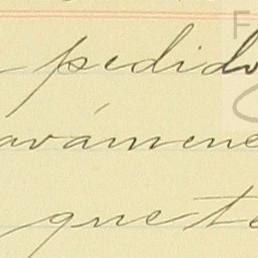 pedido
avámene
que te